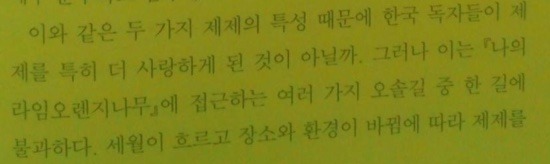 이와 같은 두 가지 제제의 특성 때문에 한국 독자들이 제
제를 특히 더 사랑하게 된 것이 아닐까. 그러나 이는 『나의
라임오렌지나무』에 접근하는 여러 가지 오솔길 중 한 길에
불과하다. 세월이 흐르고 장소와 환경이 바뀜에 따라 제제를